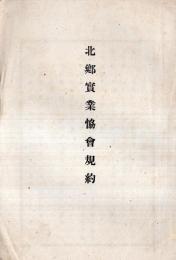 北鄕實業協會規約